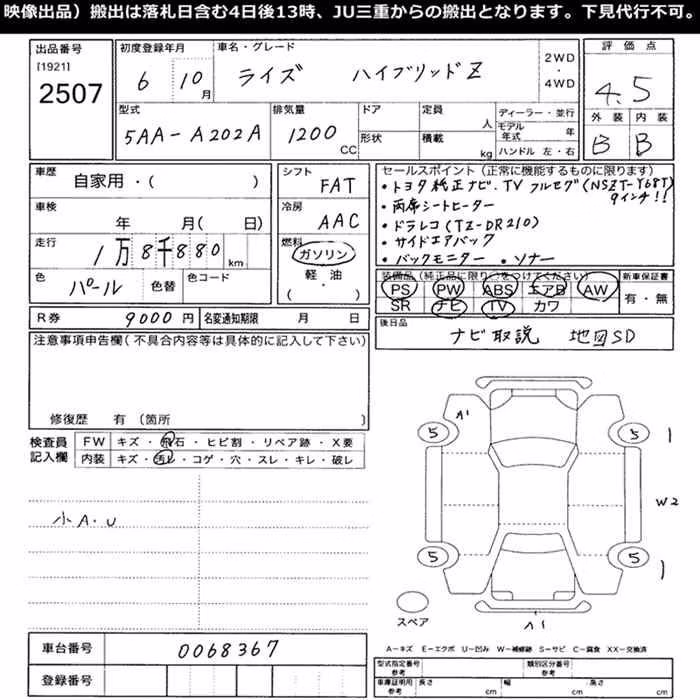 映像出品）搬出は落札日含む4日後13時、JU三重からの搬出となります。下見代行不可。
出品番号
[1921]
2507
初度登録年月
6 10月
車名・グレード
ライズ ハイブリッドZ
2WD
・
4WD
評価点
4.5
外装 内装
B B
型式
5AA-A202A
排気量
1200 CC
ドア
形状
定員 人
積載 kg
ディーラー・並行
モデル年式 年
ハンドル 左・右
車歴
自家用・( )
車検
年 月( 日)
走行
1万8千880 km
色
パール
色替
色コード
シフト
FAT
冷房
AAC
燃料
ガソリン
軽・油
( ・ )
セールスポイント（正常に機能するものに限ります）
・トヨタ純正ナビ.TV フルセグ(NSZT-Y68T)
9インチ!!
・両席シートヒーター
・ドラレコ(TZ-DR210)
・サイドエアバック
・バックモニター ・ソナー
装備品（純正品に限り○をつけてください）
PS PW ABS エアB AW
SR ナビ TV カワ
新車保証書
有・無
R券
9000円
名変通知期限 月 日
後日品
ナビ取説 地図SD
注意事項申告欄（不具合内容等は具体的に記入して下さい）
修復歴 有（箇所 ）
検査員
記入欄
FW キズ・飛石・ヒビ割・リペア跡・X要
内装 キズ・汚レ・コゲ・穴・スレ・キレ・破レ
小A.U
A1
5
5
1
W2
5
5
1
スペア
A1
A−キズ E−エクボ U−凹み W−補修跡 S−サビ C−腐食 XX−交換済
車台番号
0068367
登録番号
型式指定番号
参考
類別区分番号
参考
車庫証明用
参考
長さ cm
幅 cm
高さ cm